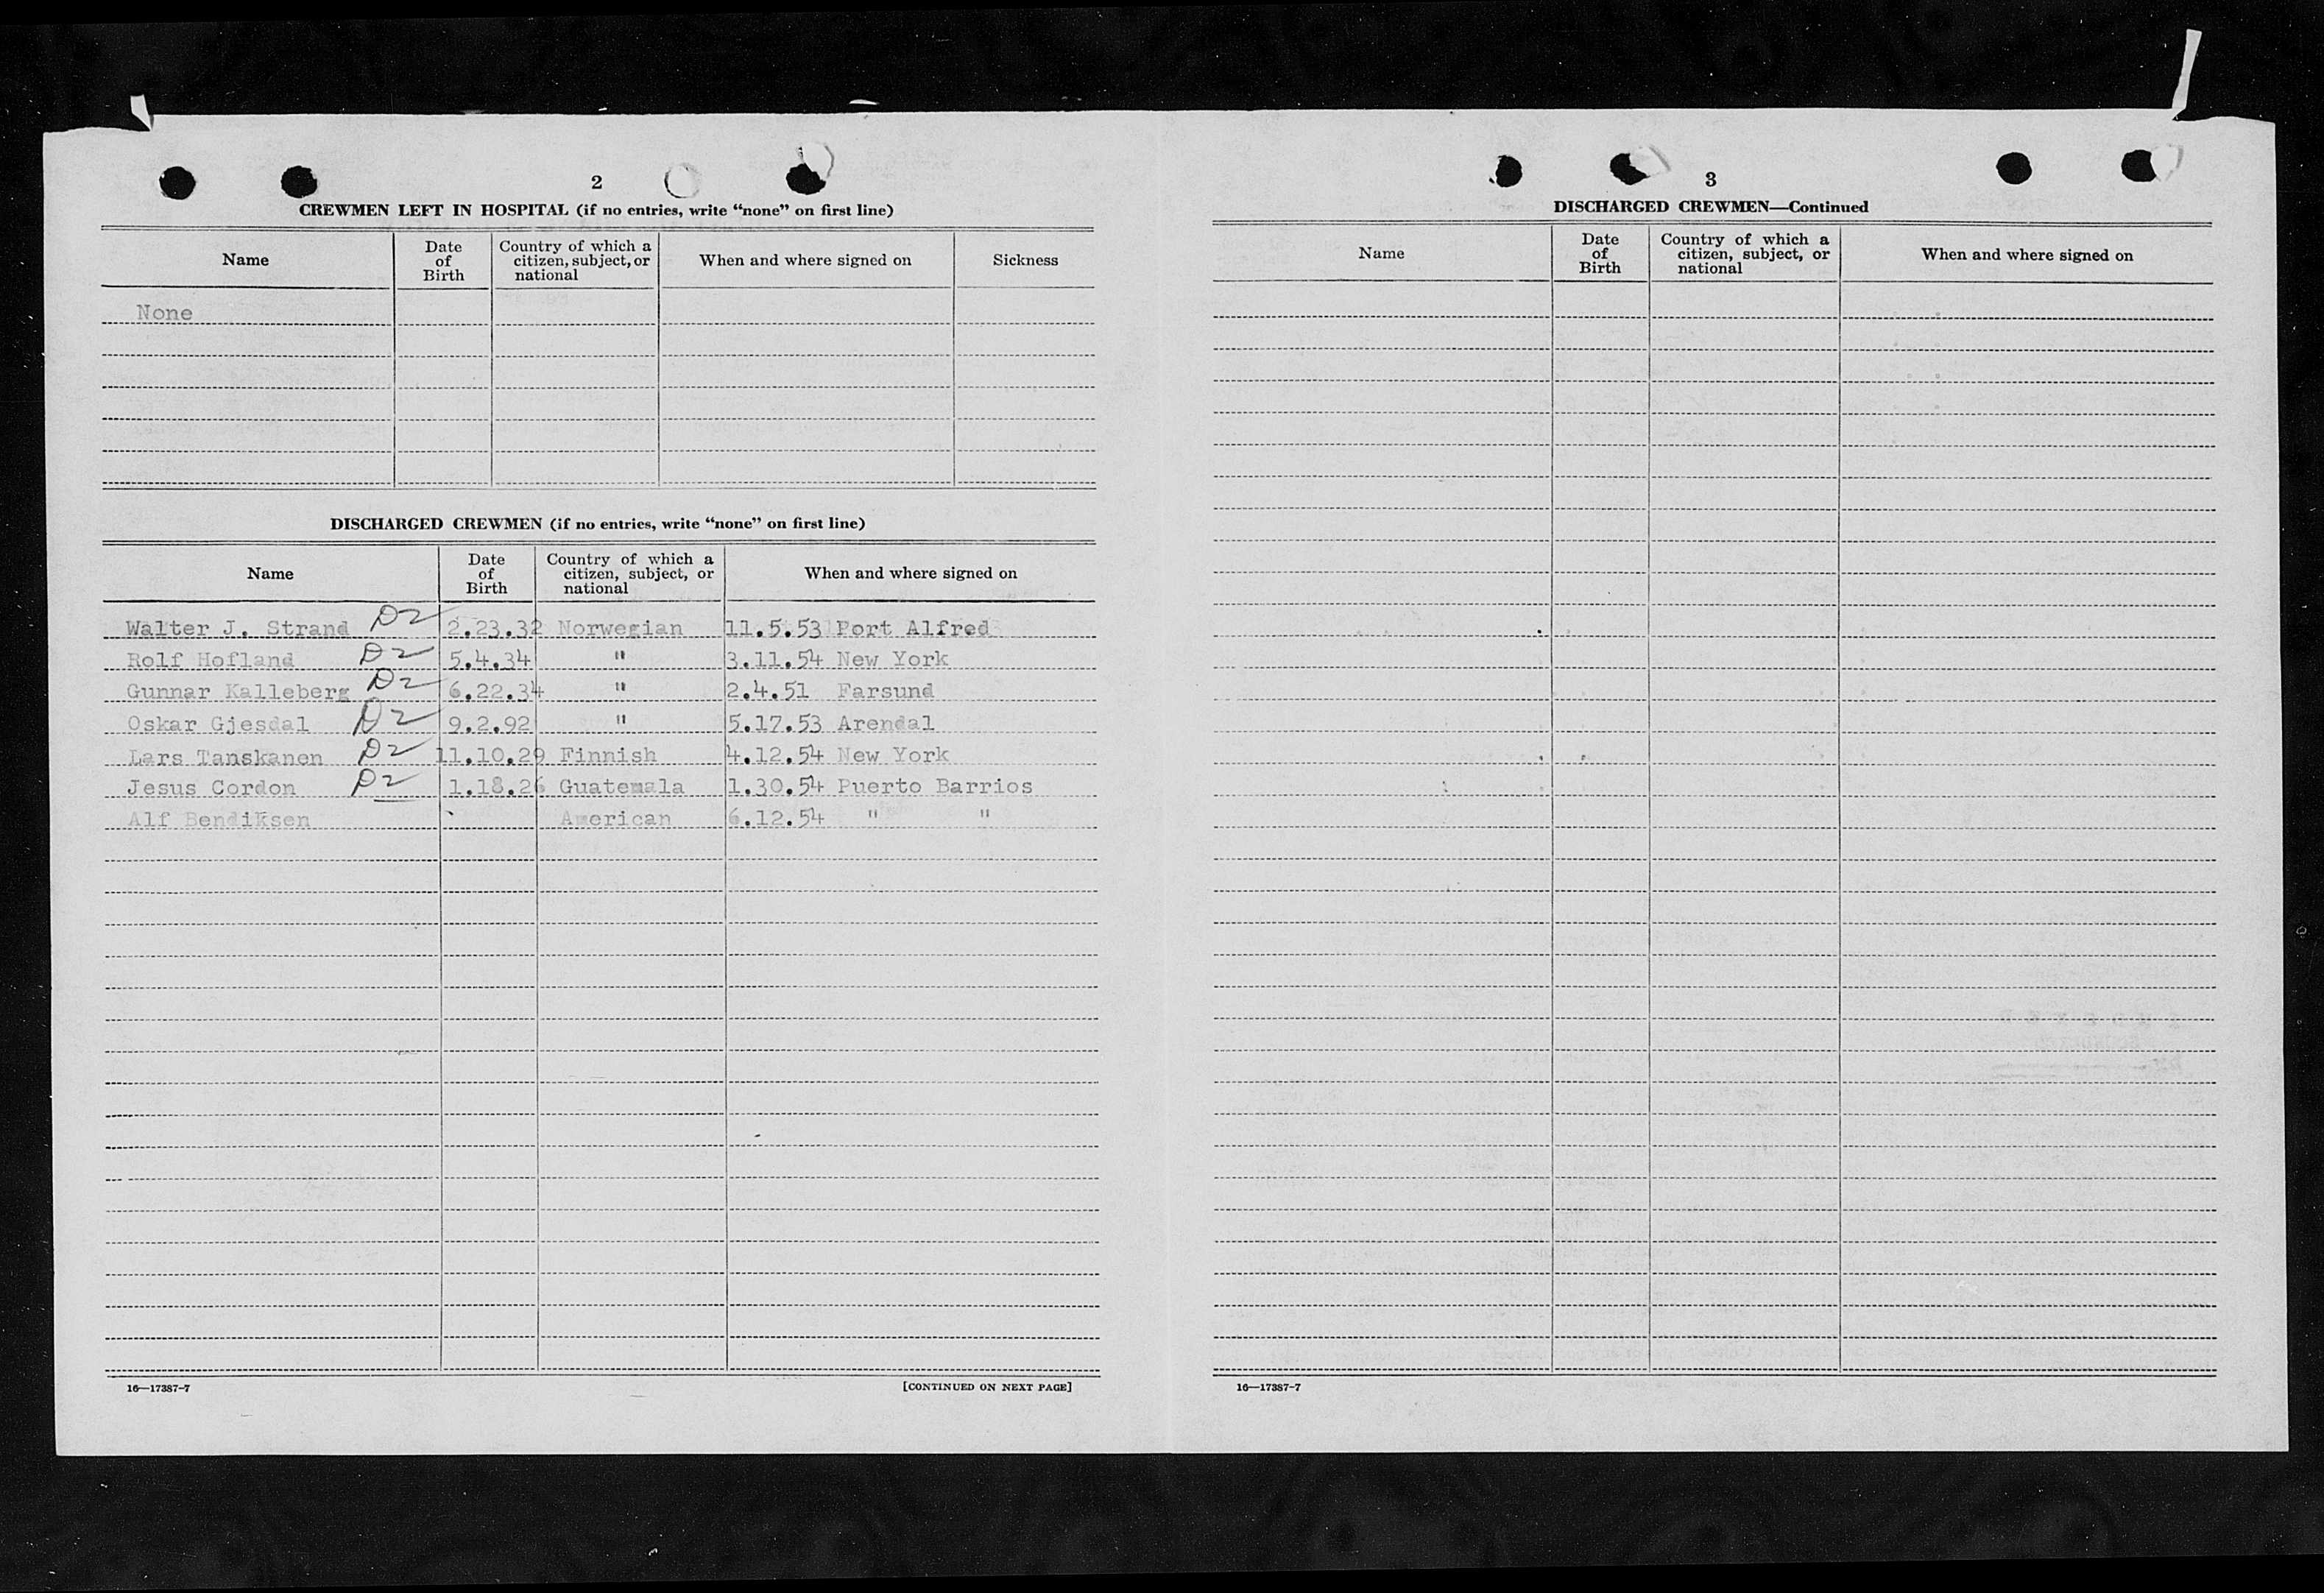 2
CREWMEN LEFT IN HOSPITAL (if no entries, write “none” on first line)
Name Date of Birth Country of which a citizen, subject, or national When and where signed on Sickness
None
DISCHARGED CREWMEN (if no entries, write “none” on first line)
Name Date of Birth Country of which a citizen, subject, or national When and where signed on
Walter J. Strand D2 2.23.32 Norwegian 11.5.53 Port Alfred
Rolf Hofland D2 5.4.34 " 3.11.54 New York
Gunnar Kalleberg D2 6.22.34 " 2.4.51 Farsund
Oskar Gjesdal D2 9.2.92 " 5.17.53 Arendal
Lars Tanskanen D2 11.10.29 Finnish 4.12.54 New York
Jesus Cordon D2 1.18.26 Guatemala 1.30.54 Puerto Barrios
Alf Bendiksen American 6.12.54 " "
16—17387-7 [CONTINUED ON NEXT PAGE]
3
DISCHARGED CREWMEN—Continued
Name Date of Birth Country of which a citizen, subject, or national When and where signed on
16—17387-7